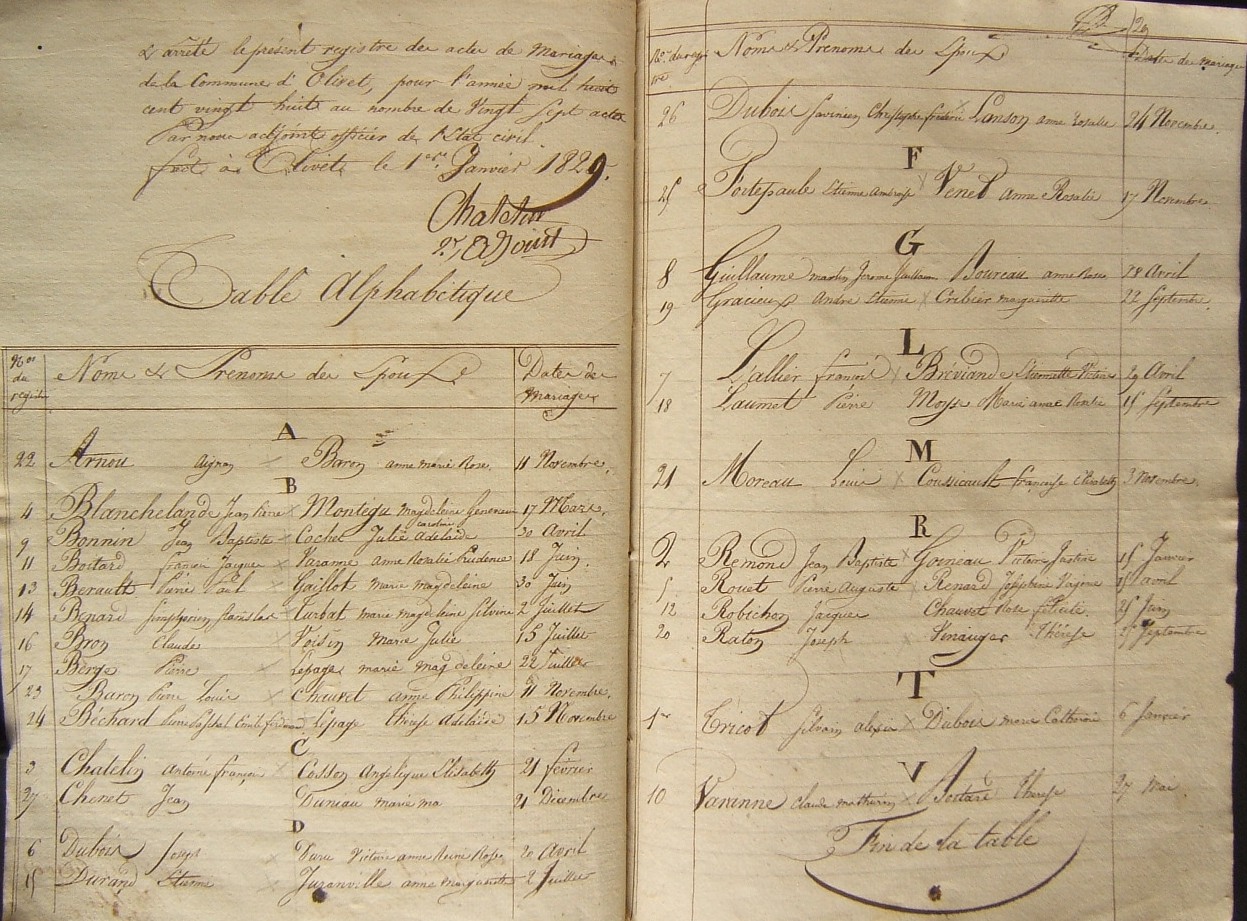 & arrêté le présent registre des actes de Mariages
de la Commune d'Olivet, pour l'année mil huit
cent vingt huit au nombre de Vingt Sept actes
Par nous adjoint officier de l'Etat civil.
fait à Olivet le 1er Janvier 1829.
Chatelin
2e Adjoint
Table Alphabétique
Nos du registre Noms & Prenoms des Epoux Dates des Mariages
A
22 Arnou Aignan × Baron anne marie Rose 11 Novembre.
B
4 Blanchelande Jean Pierre × Montégu Magdeleine Genevieve 17 Mars.
9 Bonnin Jean Baptiste × Cocher Julie caroline Adelaide 30 Avril
11 Boitard François Jacques × Varanne anne Rosalie Prudence 18 Juin.
13 Berault Pierre Paul × Gaillot marie magdeleine 30 Juin
14 Benard Simphorien Stanislas × Turbat marie magdeleine Silvine 2 Juillet
16 Bron Claude × Voisin Marie Julie 15 Juillet
17 Berge Pierre × Lepage marie magdeleine 22 Juillet
23 Baron Pierre Louis × Chauvet anne Philippine 11 Novembre.
24 Béchard Pierre Paschal Emile × Lepage Thérese Adelaide 15 Novembre
C
3 Chatelin Antoine françois × Cosson Angélique Elisabeth 21 février
27 Chenet Jean Duneau marie 21 Décembre
D
6 Dubois Joseph × Victoire anne Reine Rose 20 Avril
15 Durand Etienne × Juranville anne marguerite 2 Juillet
No du registre Noms & Prenoms des Epoux Date de Mariage
26 Dubois Savinien Christophe fréderic × Lanson anne Rosalie 24 Novembre.
F
25 Fortepaule Etienne Ambroise × Venot anne Rosalie 17 Novembre.
G
8 Guillaume martin Jerome Guillaume Boureau anne Rose 28 Avril
19 Gracieux André Etienne × Cribier marguerite 22 Septembre.
L
7 Lallier françois × Breviande Etiennette Victoire 29 Avril
18 Laumet Pierre Moyse Marie anne 15 Septembre
M
21 Moreau Louis × Coussicault françoise Elisabeth 3 Novembre.
R
2 Remond Jean Baptiste × Goineau Victoire Justine 15 Janvier
5 Rouet Pierre Auguste × Renard Josephine 15 avril
12 Robichon Jacques Chauvet Rose félicité 25 Juin
20 Raton Joseph × Vinauger Thérèse 25 Septembre
T
1er Tricot Silvain alexis × Dubois marie Catherine 6 Janvier
V
10 Varenne Claude mathurin × Boitard Thérèse 27 Mai.
Fin de la table